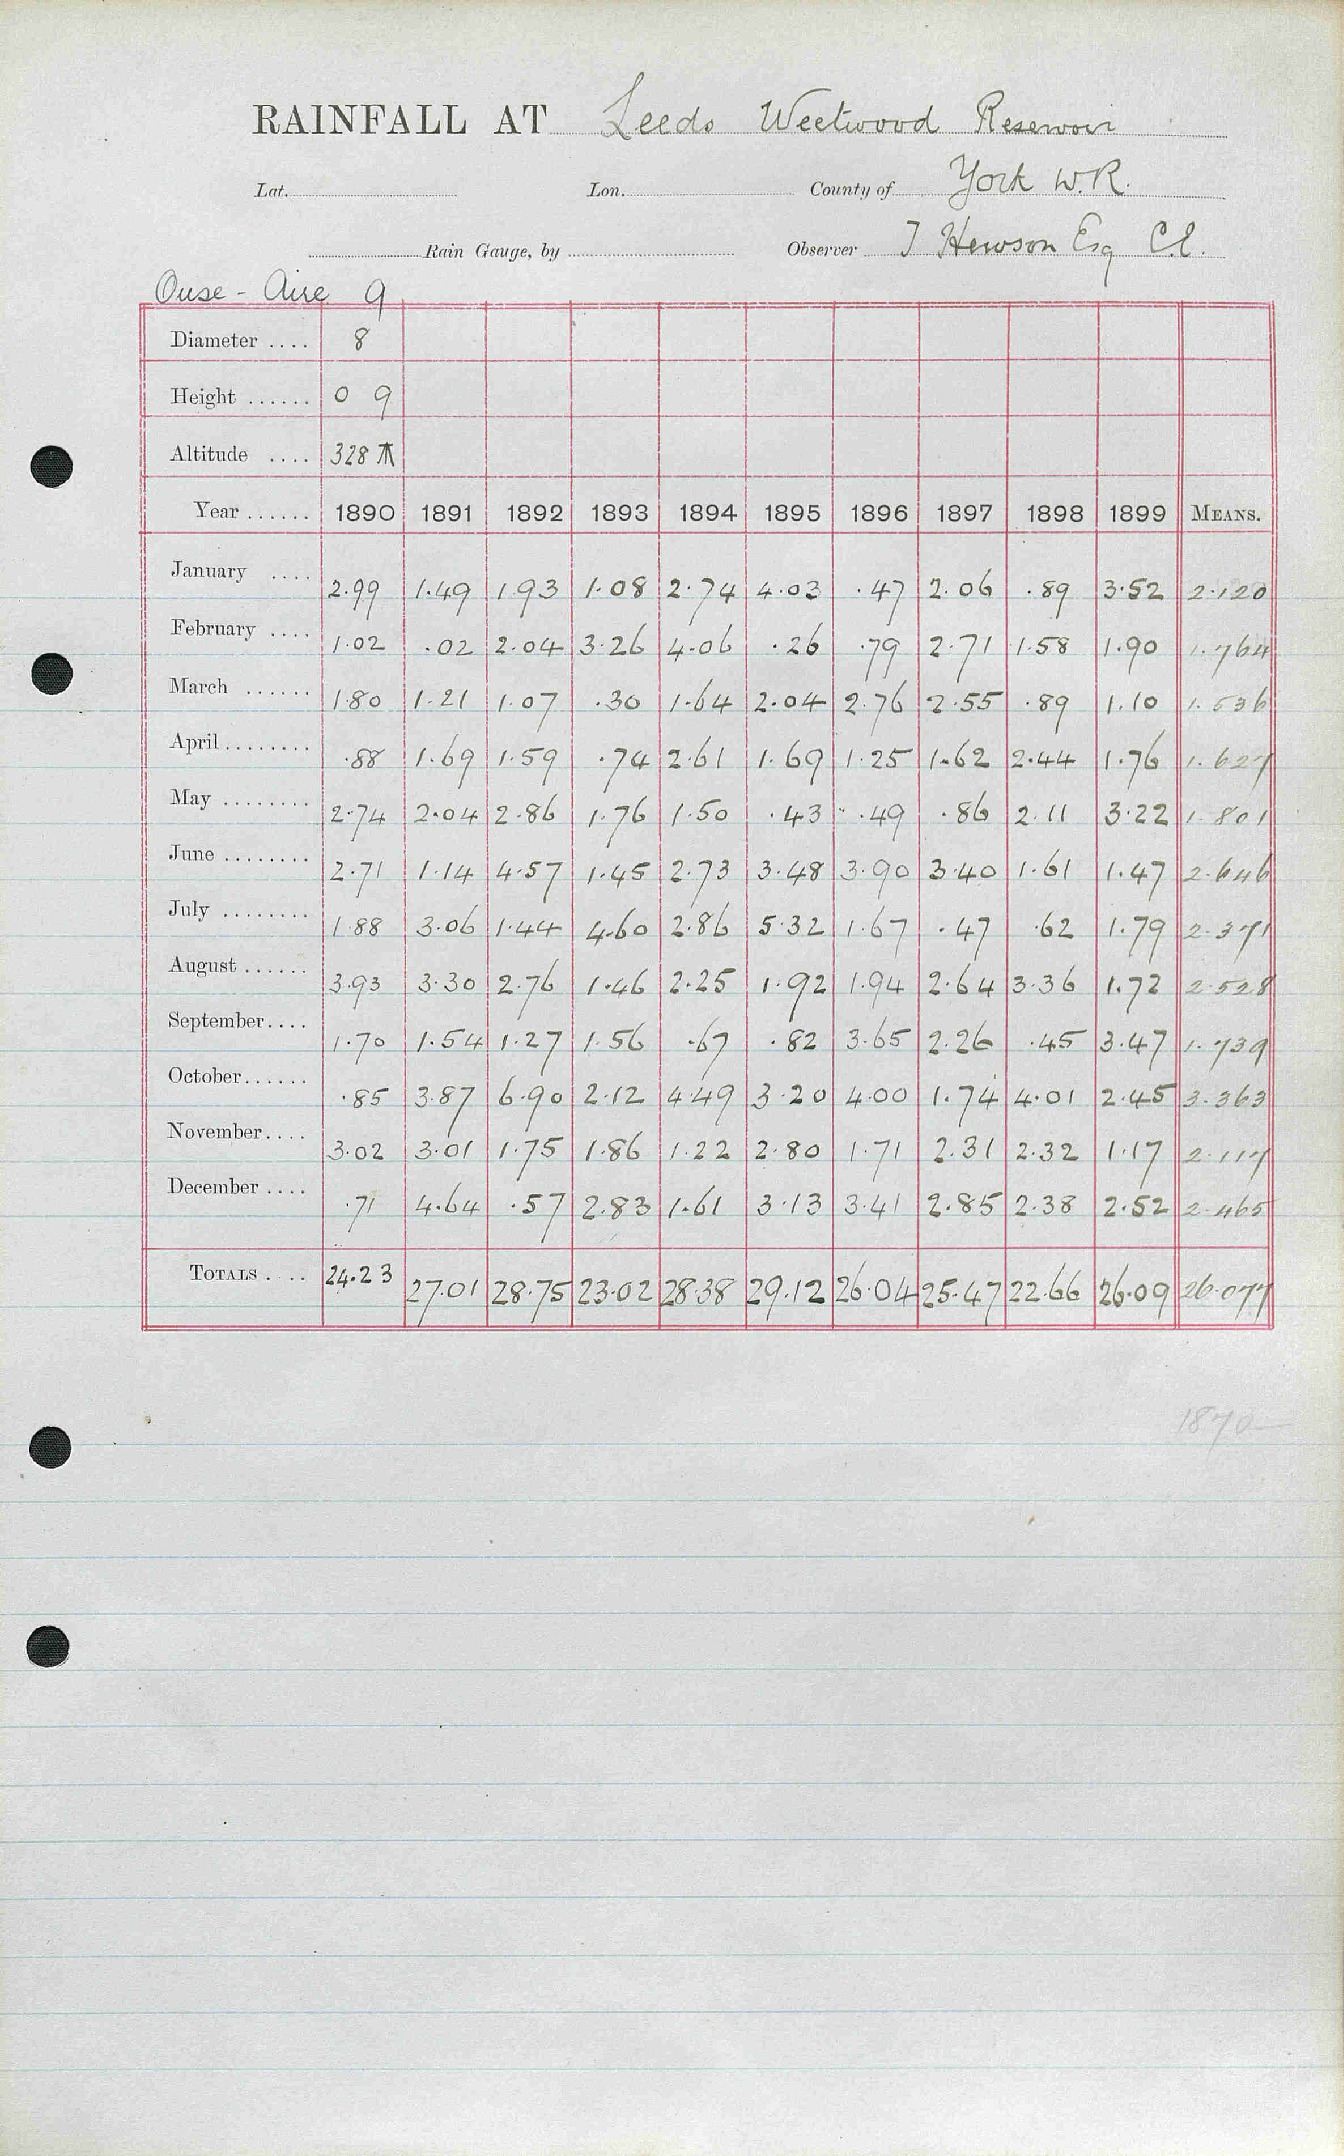 RAINFALL AT Leeds Weetwood Reservoir
Lat. Lon. County of York W.R.
Rain Gauge, by Observer T Hewson Esq C.E.
Ouse - Aire 9
Diameter .... 8
Height ...... 0 9
Altitude .... 328 ⊼
Year ...... 1890 1891 1892 1893 1894 1895 1896 1897 1898 1899 MEANS.
January .... 2.99 1.49 1.93 1.08 2.74 4.03 .47 2.06 .89 3.52 2.120
February .... 1.02 .02 2.04 3.26 4.06 .26 .79 2.71 1.58 1.90 1.764
March ...... 1.80 1.21 1.07 .30 1.64 2.04 2.76 2.55 .89 1.10 1.536
April ........ .88 1.69 1.59 .74 2.61 1.69 1.25 1.62 2.44 1.76 1.627
May ........ 2.74 2.04 2.86 1.76 1.50 .43 .49 .86 2.11 3.22 1.801
June ........ 2.71 1.14 4.57 1.45 2.73 3.48 3.90 3.40 1.61 1.47 2.646
July ........ 1.88 3.06 1.44 4.60 2.86 5.32 1.67 .47 .62 1.79 2.371
August ...... 3.93 3.30 2.76 1.46 2.25 1.92 1.94 2.64 3.36 1.72 2.528
September.... 1.70 1.54 1.27 1.56 .67 .82 3.65 2.26 .45 3.47 1.739
October...... .85 3.87 6.90 2.12 4.49 3.20 4.00 1.74 4.01 2.45 3.363
November.... 3.02 3.01 1.75 1.86 1.22 2.80 1.71 2.31 2.32 1.17 2.117
December .... .71 4.64 .57 2.83 1.61 3.13 3.41 2.85 2.38 2.52 2.465
TOTALS .... 24.23 27.01 28.75 23.02 28.38 29.12 26.04 25.47 22.66 26.09 26.077
1870—